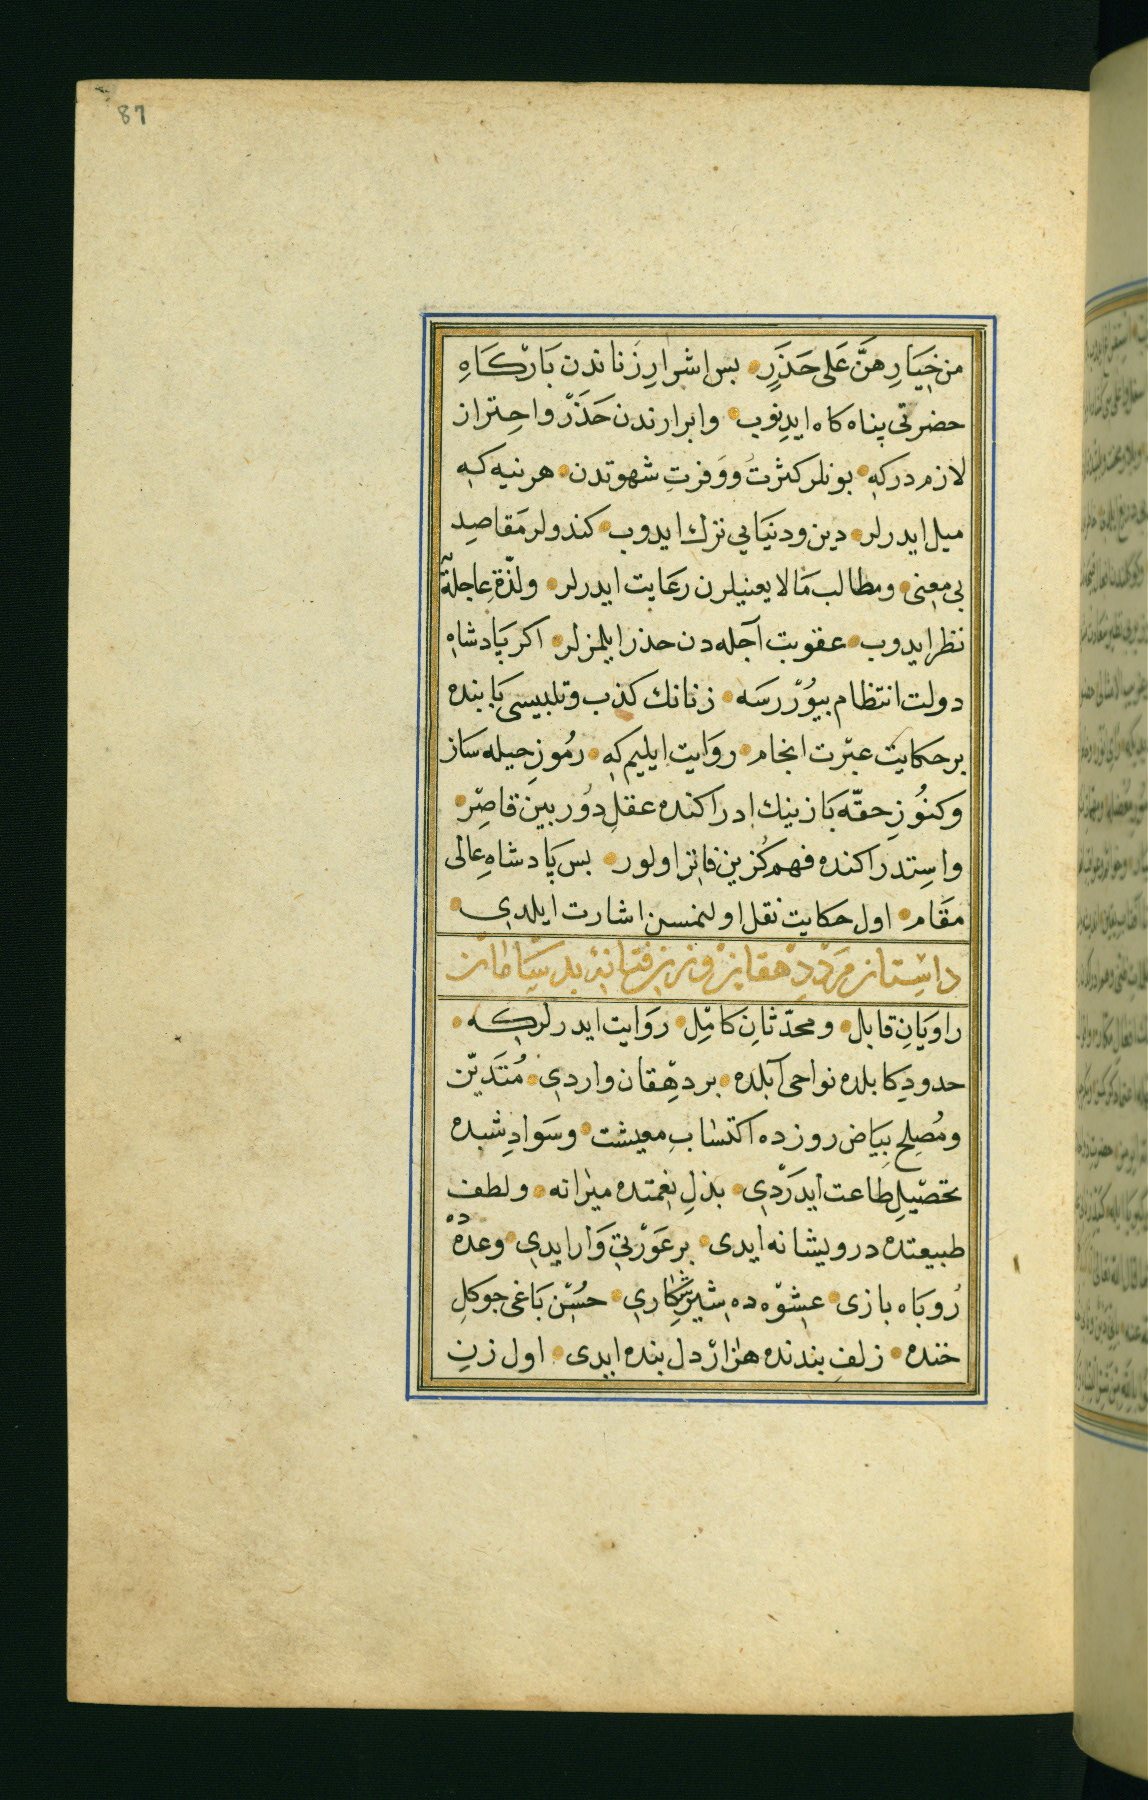 87
من خِیَارِهنَّ عَلی حَذَرٍ بس اشرارِ زَناندن بَارْکَاهِ
حضرتی پناه کاه ایدِنوب وابراراندن حَذَرْ واحِتراز
لازم در که بونلر کثرتُ ووَفرتِ شهوتدن هر نیه که
میل ایدرلر دین ودنیَایی ترك ایدوب کندولر مَقاصِدِ
بی معنی ومطالب مَالایعنیلرن رعَایت ایدرلر ولذّةِ عاجلةٓ
نظر ایدوب عقوبت آجله دن حذر ایلمزلر اکر پَادشاهِ
دولت انتظام بیوُرْرسَه زنانك کذب وتلبیسی بَابنده
بر حکایت عبرّت انجام روَایت ایلیم که رمُوزِ حیله سَاز
وکنوُزِ حقّه بَازینیك ادراکنده عقلِ دوُربین قاصِرْ
واسِتدراکنده فهم کُزین فاتر اولور بس پَادشاهِ عالی
مقَام اول حکایت نقل اولنمسن اشارت ایلدی
داسِتاز مَرْدِ دِهقاز وزنِ فتانۀ بد سَامان
راویَانِ قابل ومحدّثانِ کامِل روَایت ایدرلر که
حدودِ کابلده نواحی آبلده بر دهِّقان واردی مُتَدَیّن
ومُصِلح بیَاض روزده اکتسَابِ معیشت وسَوادِ شبده
تحصّیلِ طَاعت ایدَرْدِی بذلِ نعمتده میرانه ولطف
طبیعتده درویشانه ایدی بر عَوْرتی وَار ایدی وعده ده
رُوبَاه بازی عشوّه ده شیر شِکَاری حسُنْ بَاغی جو کلِ
خنده زلفِ بندنده هزارْ دل بنده ایدی اول زنِ